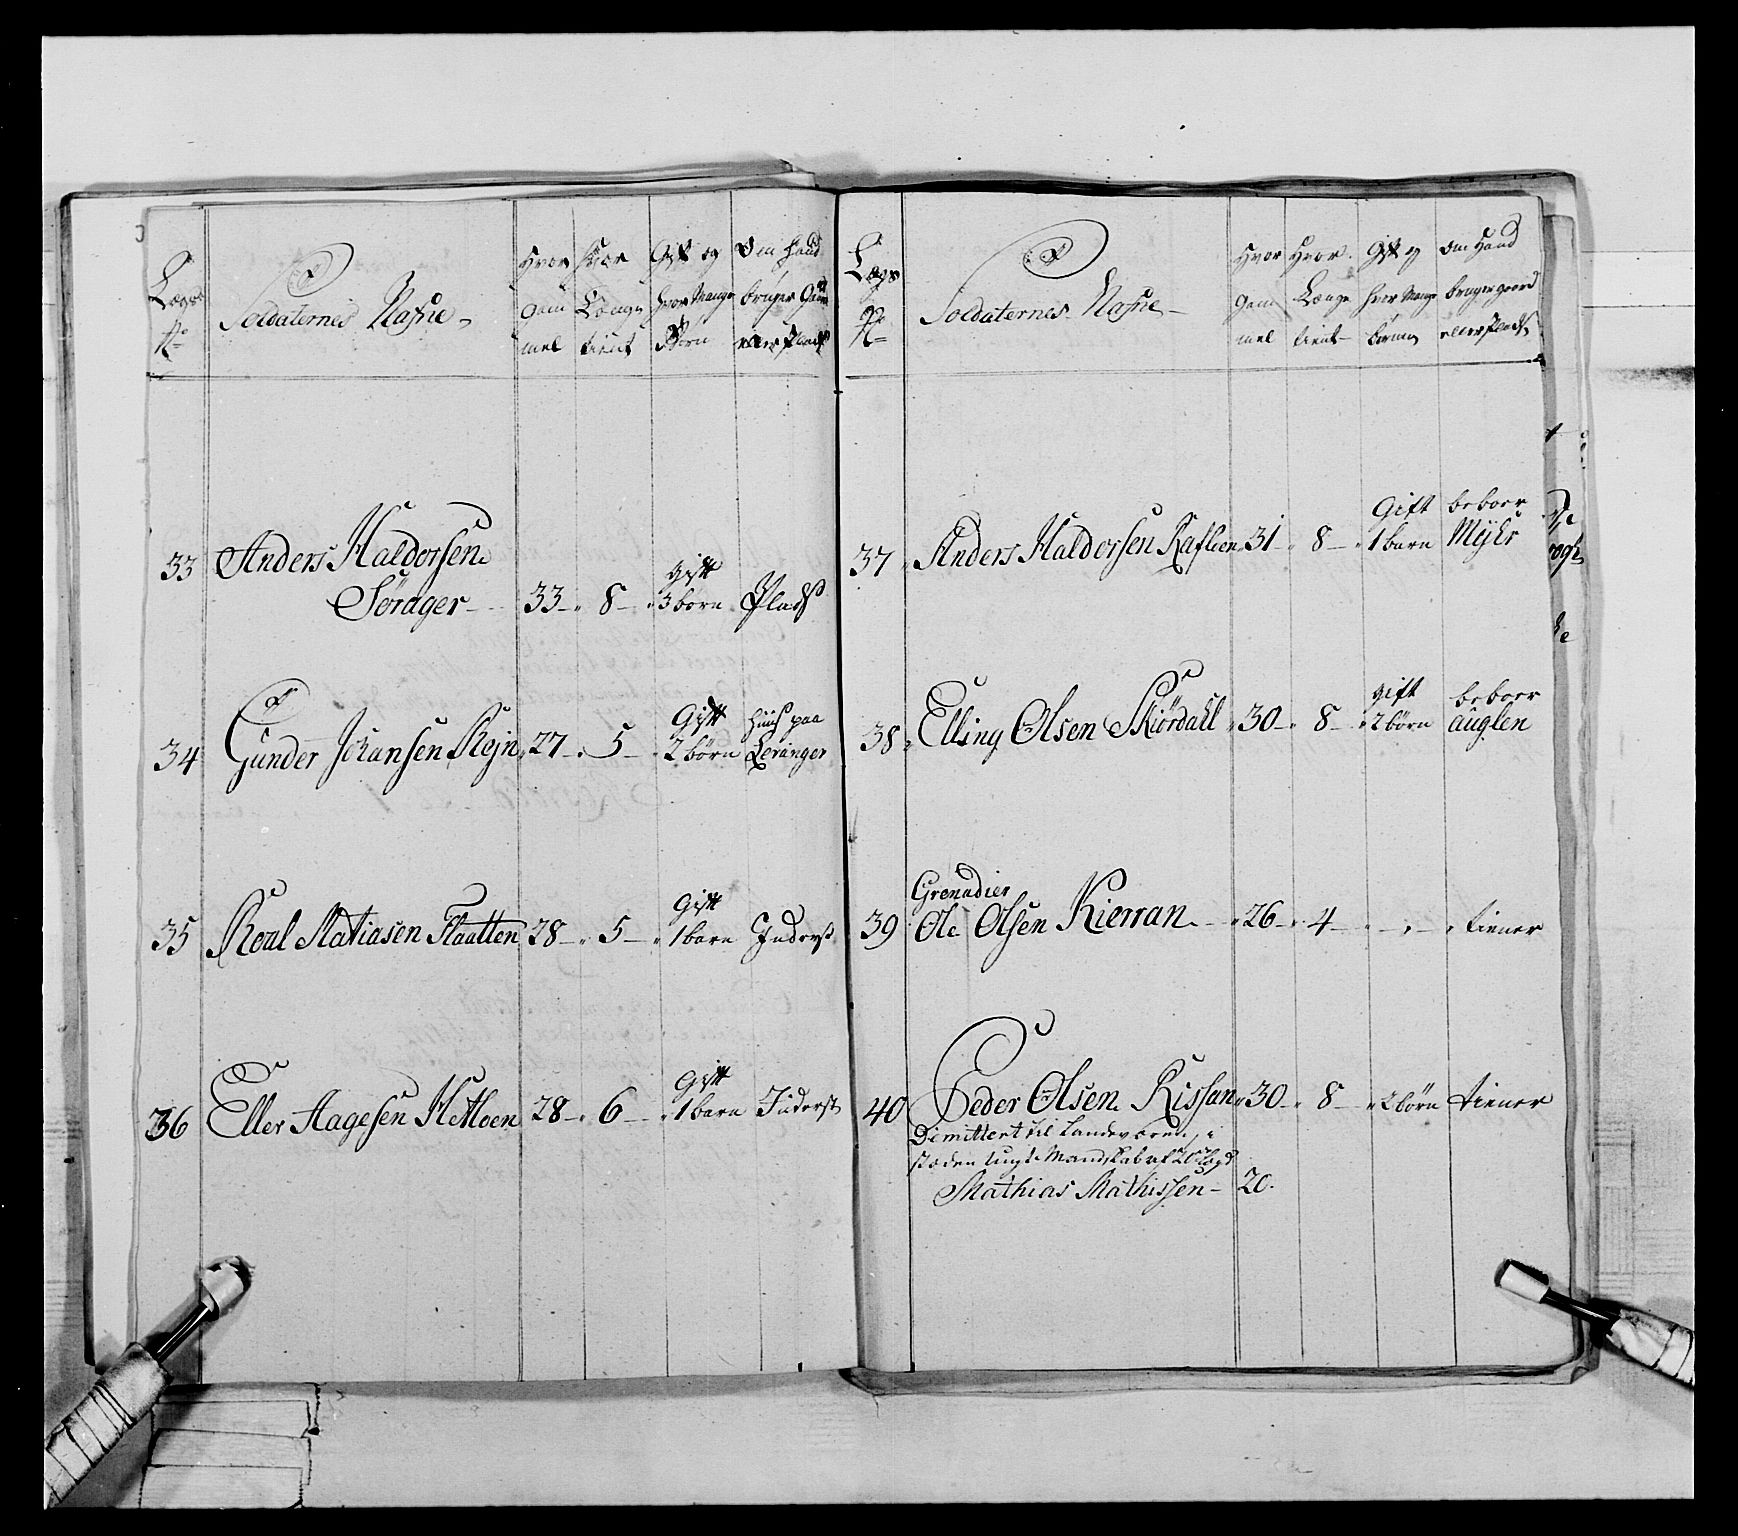 Lægs No
Soldaternes Nafne
Hvor gammel
Hvor Længe tient
Gift og hvor Mange Børn
Om hand bruger Gaard eller Plads
33 Anders Haldorsen
Sørager 33 8 Gift 3 børn Plads
34 Gunder Johansen Rejn 27 5 Gift 2 børn Huus paa Leranger
35 Roal Matiasen Flaatten 28 5 Gift 1 barn Inderst
36 Eller Aagesen Hetloen 28 6 Gift 1 barn Inderst
Lægs No
Soldaternes Nafne
Hvor gammel
Hvor Længe tient
Gift og hvor Mange børn
Om Hand bruger gaard eller Plads
37 Anders Haldorsen Rafleen 31 8 Gift 1 barn beboer Myhr
38 Elling Olsen Skiördahl 30 8 gift 2 børn beboer auglen
Grenadier
39 Ole Olsen Kierran 26 4 tiener
40 Peder Olsen Rissan 30 8 2 børn tiener
Dimittert til Landeværen, i
stæden ungt Mandskab af 20 Lægd
Mathias Mathissen 20.